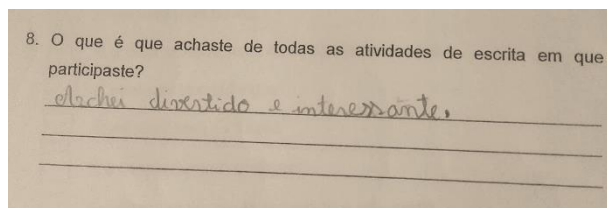 8. O que é que achaste de todas as atividades de escrita em que
participaste?
Achei divertido e interessante.